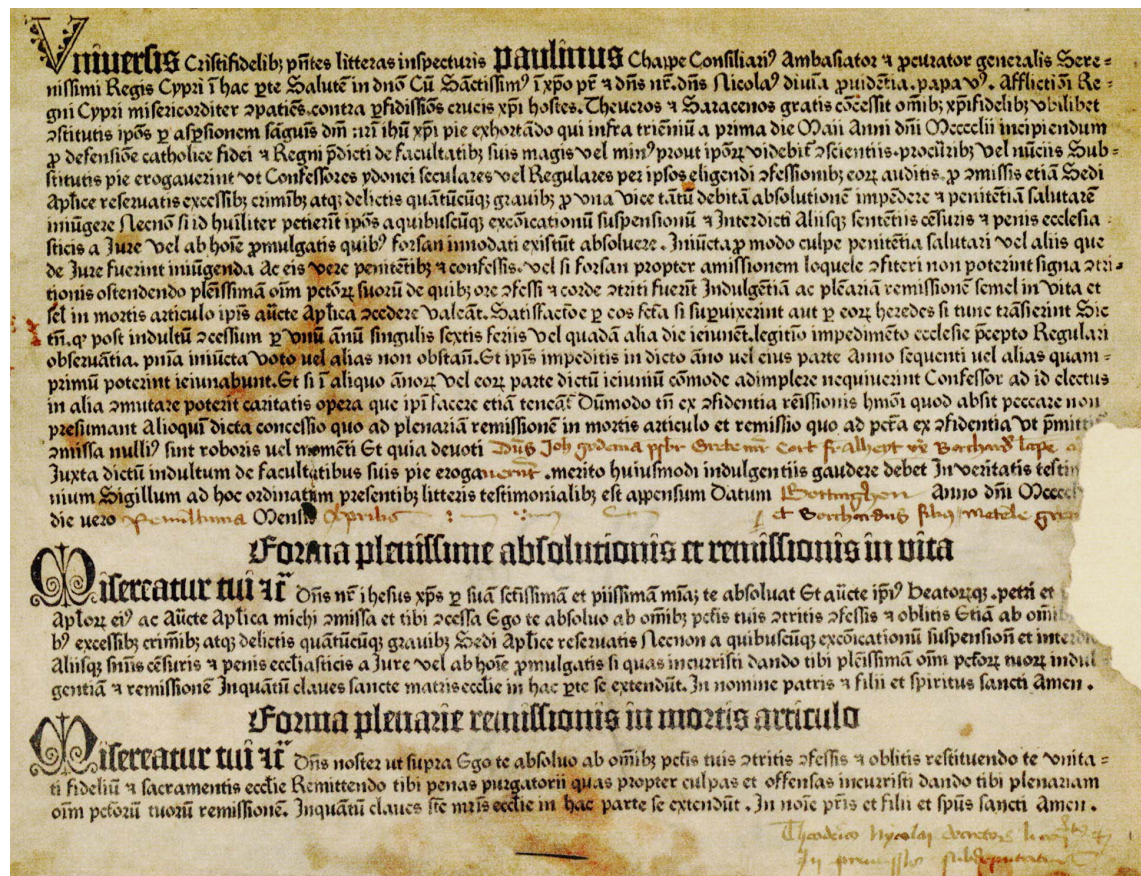 Vniversis Cristifidelibꝫ pñtes litteras inspecturis paulinus Chappe Consiliariꝰ Ambasiator ⁊ ꝓcurator generalis Sere⸗
nissimi Regis Cypri ĩ hac ꝑte Salutē in dño Cū Sāctissimꝰ ĩ xp̄o pr̄ ⁊ dñs nr̄. dñs Nicolaꝰ diuīa ꝓuidētia. papa vꝰ. Afflictiōi Re⸗
gni Cypri misericorditer ꝯpatiēs. contra ꝑfidissīos crucis xp̄i hostes. Theucros ⁊ Saracenos gratis cōcessit om̄ibꝫ xp̄ifidelibꝫ vbilibet
ꝯstitutis ip̄os ꝑ asꝑsionem sāguīs dñi nr̄i ihū xp̄i pie exhortādo qui infra triēniū a prima die Maii Anni dñi Mcccclii incipiendum
ꝓ defensiōe catholice fidei ⁊ Regni p̄dicti de facultatibꝫ suis magis vel minꝰ prout ip̄oꝝ videbit̄ ꝯscientiis. procūribꝫ vel nūciis Sub⸗
stitutis pie erogaverint vt Confessores ydonei seculares vel Regulares per ipsos eligendi ꝯfessionibꝫ eoꝝ auditis. ꝓ ꝯmissis etiā Sedi
Aplice reservatis excessibꝫ crimībꝫ atqꝫ delictis quātūcūqꝫ gravibꝫ ꝓ vna vice tātū debitā absolutionē impēdere ⁊ penitētiā salutarē
iniūgere Necnō si id hūiliter petierīt ip̄os a quibuscūqꝫ excōicationū suspensionū ⁊ Interdicti Aliisqꝫ sentētiis cēsuris ⁊ penis ecclesia
sticis a Jure vel ab hoīe ꝓmulgatis quibꝰ forsan innodati existūt absoluere. Iniūcta ꝓ modo culpe penitētia salutari vel aliis que
de Jure fuerint iniūgenda Ac eis vere penitētibꝫ ⁊ confessis. vel si forsan propter amissionem loquele ꝯfiteri non poterint signa ꝯtri⸗
tionis ostendendo plēissimā oīm pctōꝝ suoꝝ de quibꝫ ore ꝯfessi ⁊ corde ꝯtriti fuerīt Indulgētiā ac plēariā remissionē semel in vita et
sel̄ in mortis articulo ip̄is aūcte Aplica ꝯcedere valeāt. Satisfactōe ꝑ eos fc̄ta si suꝑvixerint aut ꝑ eoꝝ heredes si tunc trāsierint Sic
tñ. qꝫ post indultū ꝯcessium ꝑ vnū ānū singulis sextis feriis vel quadā alia die ieiunēt. legītīo impedimēto ecclesie p̄cepto Regulari
observātia. pnīa iniūcta voto uel alias non obstañ. Et ip̄is impeditis in dicto āno vel eius parte Anno sequenti uel alias quam⸗
primū poterint ieiunabunt. Et si ĩ aliquo ānoꝝ vel eoꝝ parte dictū ieiuniū cōmode adimplere nequiuerint Confessor ad id electus
in alia ꝯmutare poterit caritatis opera que ip̄i facere etiā teneāt̄ Dūmodo tñ ex ꝯfidentia rēissionis hmōi quod absit peccare non
presumant Alioqui dicta concessio quo ad plenariā remissionē in mortis articulo et remissio quo ad pctā ex ꝯfidentia vt p̄mittit̄
ꝯmissa nulliꝰ sint roboris uel momēti Et quia devoti Dñs Joh
Juxta dictū indultum de facultatibus suis pie erogaverunt. merito huiusmodi indulgentiis gaudere debet In veritatis testim
nium Sigillum ad hoc ordinatum presentibꝫ litteris testimonialibꝫ est appensum Datum Anno dñi Mcccc
die vero Mensis Aprilis et Borchardus filiꝰ
Forma plenissime absolutionis et remissionis in vita
Misereatur tui ⁊c̄ Dñs nr̄ ihesus xp̄s ꝑ suā sctīssimā et piissimā mīaꝫ te absoluat Et aūcte ip̄iꝰ beatorꝫqꝫ. petri et
Aploꝝ eiꝰ ac Aūcte Aplica michi ꝯmissa et tibi ꝯcessa Ego te absoluo ab om̄ibꝫ pctīs tuis ꝯtritis ꝯfessis ⁊ oblitis Etiā ab omi
bꝰ excessibꝫ crimībꝫ atqꝫ delictis quātūcūqꝫ gravibꝫ Sedi Aplice reservatis Necnon a quibuscūqꝫ excōicationū suspensioñ et interdi
Aliisqꝫ sniīs cēsuris ⁊ penis ecclīasticis a Jure vel ab hoīe ꝓmulgatis si quas incurristi dando tibi plēissimā oīm pctōꝝ tuoꝝ indul⸗
gentiā ⁊ remissionē Inquātū claves sancte matris ecclīe in hac ꝑte se extendūt. In nomine patris ⁊ filii et spiritus sancti Amen.
Forma plenarie remissionis in mortis articulo
Misereatur tui ⁊c̄ Dñs noster ut supra Ego te absoluo ab om̄ibꝫ pctīs tuis ꝯtritis ꝯfessis ⁊ oblitis restituendo te vnita⸗
ti fideliū ⁊ sacramentis ecclīe Remittendo tibi penas purgatorii quas propter culpas et offensas incurristi dando tibi plenariam
oīm pctōrū tuorū remissionē. Inquātū claues ste mr̄is ecclīe in hac parte se extendūt. In noīe pr̄is et filii et spūs sancti Amen.
Theodrico Nycolai decretorū
In premissis subdeputatus